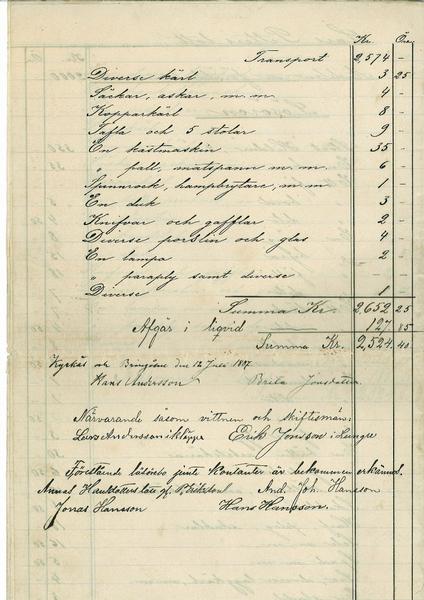 Kr. Öre
Transport 2,574 –
Diverse kärl 3 25
Säckar, askar, m. m. 4 –
Kopparkärl 8 –
Tafla och 5 stolar 9 –
En kästmaskin 35 –
" pall, matspann m. m. 6 –
Spinnrock, hampbrytare, m. m 1 –
En duk 3 –
Knifvar och gafflar 2 –
Diverse porslin och glas 4 –
En lampa 2 –
" paraply samt diverse –
Diverse 1 –
Summa Kr. 2,652 25
Afgår i liqvid 127. 85
Summa Kr. 2,524. 40
Kyrkås och den 12 Juli
Hans Andersson Brita Jonsdotter
Närvarande såsom vittnen och skiftismän:
Lars Andersson i Kläppe Erik Jonsson i Lungre
Förestående lösörebo jemte Kontanter är bekommen erkänna.
And. Joh. Hansson
Jonas Hansson Hans Hansson.